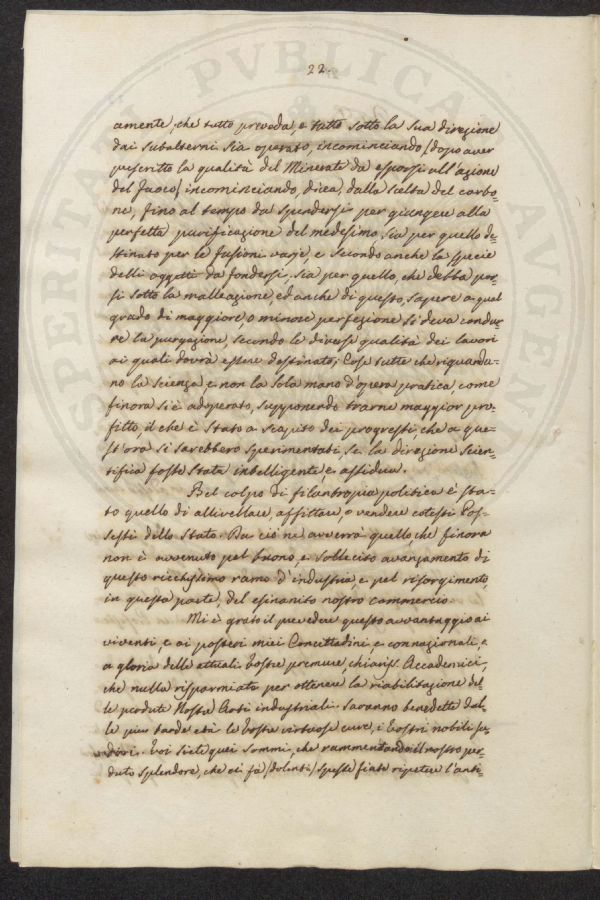 22.
amente, che tutto preveda, e tutto sotto la sua direzione
dai subalterni sia operato, incominciando (dopo aver
prescritto la qualità del Minerale da esporsi all'azione
del fuoco) incominciando, dica, dalla scelta del carbo=
ne, fino al tempo da spendersi per giungere alla
perfetta purificazione del medesimo, sia per quello de=
stinato per le fusioni varie, e secondo anche la specie
delli oggetti da fondersi, sia per quello, che debba por=
si sotto la malleazione, ed anche di questo, sapere a qual
grado di maggiore, o minore perfezione si deva condur=
re la purgazione, secondo le diverse qualità dei lavori
ai quali dovrà essere destinato; Cose tutte che riguarda=
no la scienza e non la sola mano d'opera pratica, come
finora si è adoperato, supponendo trarne maggior pro=
fitto, il che è stato a scapito dei progressi, che a que=
st'ora si sarebbero sperimentati, se la direzione scien=
tifica fosse stata intelligente, e assidua.
Bel colpo di filantropia politica è sta=
to quello di allivellare, affittare, o vendere cotesti Pos=
sessi dello Stato. Da ciò ne avverrà quello, che finora
non è avvenuto pel buono, e sollecito avanzamento di
questo ricchissimo ramo d'industria, e pel risorgimento,
in questa parte, del esinanito nostro commercio.
Mi è grato il prevedere questo avvantaggio ai
viventi, e ai posteri miei Concittadini, e connazionali, e
a gloria delle attuali Vostre premure, chiariss. Accademici,
che nulla risparmiate per ottenere la riabilitazione del=
le perdute Nostre Arti industriali. Saranno benedette dal=
le più tarde età le Vostre virtuose cure, i Vostri nobili su=
dori. Voi siete quei sommi, che rammentando il nostro per=
duto splendore, che ci fà (dolenti) spesse fiate ripetere l'anti=
SPERIT PVBLICA AVGEN